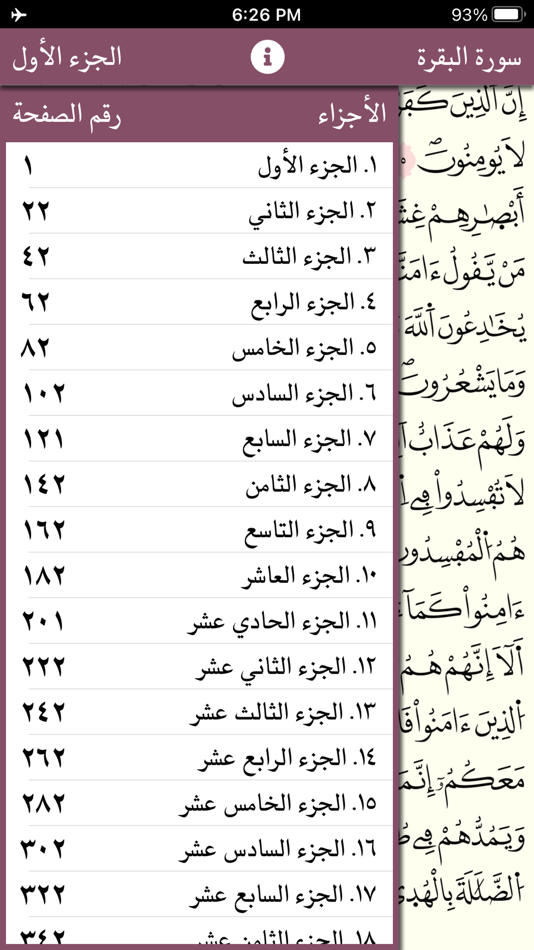 6:26 PM
93%
سورة البقرة
الجزء الأول
الأجزاء رقم الصفحة
١. الجزء الأول ١
٢. الجزء الثاني ٢٢
٣. الجزء الثالث ٤٢
٤. الجزء الرابع ٦٢
٥. الجزء الخامس ٨٢
٦. الجزء السادس ١٠٢
٧. الجزء السابع ١٢١
٨. الجزء الثامن ١٤٢
٩. الجزء التاسع ١٦٢
١٠. الجزء العاشر ١٨٢
١١. الجزء الحادي عشر ٢٠١
١٢. الجزء الثاني عشر ٢٢٢
١٣. الجزء الثالث عشر ٢٤٢
١٤. الجزء الرابع عشر ٢٦٢
١٥. الجزء الخامس عشر ٢٨٢
١٦. الجزء السادس عشر ٣٠٢
١٧. الجزء السابع عشر ٣٢٢
١٨. الجزء الثامن عشر ٣٤٢
إِنَّ اَ۬لذِينَ
لَا يُومِنُونَۖ
أَبْصٰ۪رِهِمْ
مَنْ يَّقُولُ ءَامَنَّا
يُخَٰدِعُونَ اَ۬للَّهَ
وَمَا يَشْعُرُونَۖ
وَلَهُمْ عَذَابٌ
لَا تُفْسِدُواْ فِے
هُمُ اُ۬لْمُفْسِدُونَ
ءَامِنُواْ كَمَآ
أَلَآ إِنَّهُمْ هُمُ
اُ۬لذِينَ ءَامَنُواْ
مَعَكُمُۥٓ إِنَّمَا
وَيَمُدُّهُمْ فِے
اُ۬لضَّلَٰلَةَ بِالْهُد۪يٰ